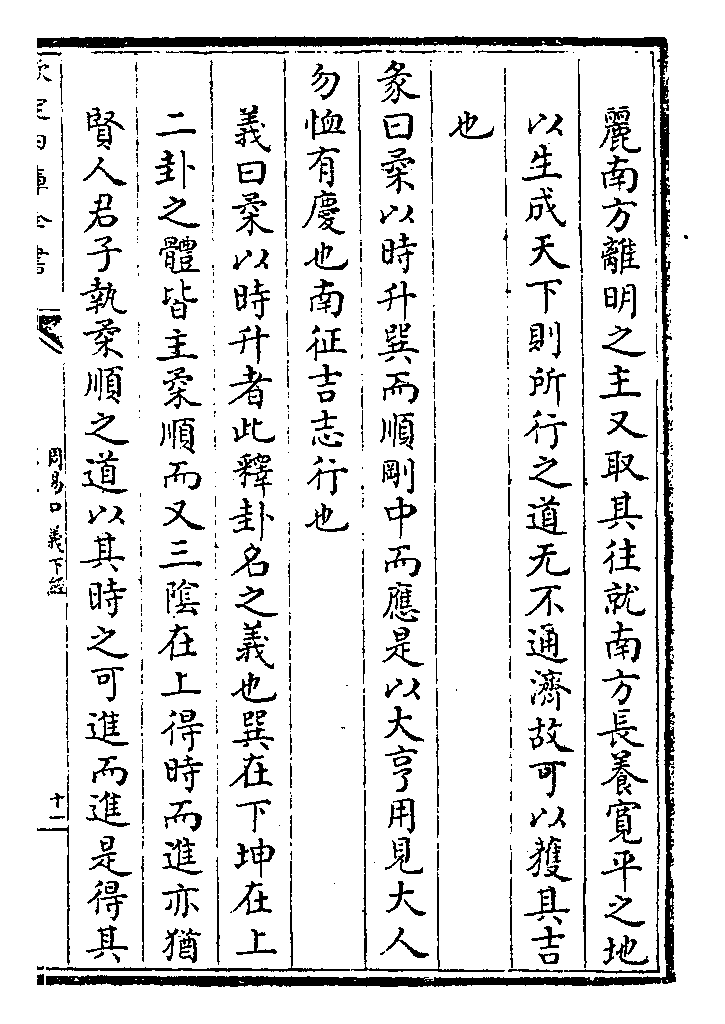 麗南方離明之主又取其往就南方長養寛平之地
以生成天下則所行之道无不通濟故可以獲其吉
也
彖曰柔以時升巽而順剛中而應是以大亨用見大人
勿恤有慶也南征吉志行也
義曰柔以時升者此釋卦名之義也巽在下坤在上
二卦之體皆主柔順而又三隂在上得時而進亦猶
賢人君子執柔順之道以其時之可進而進是得其
欽定四庫全書
周易口義下經
十二